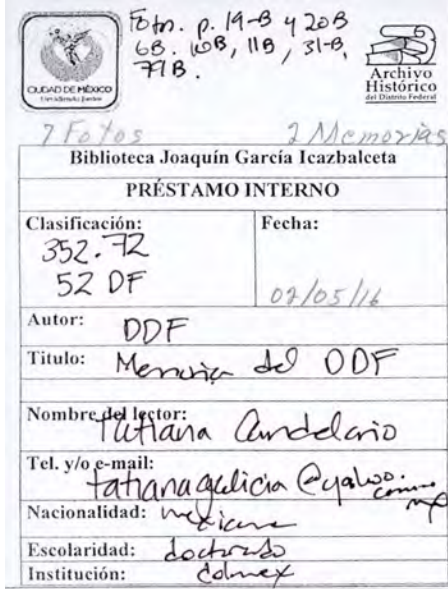 Foto. p. 19-B y 20B
6B. 10B, 11B, 31-B,
79B.
CIUDAD DE MÉXICO
Archivo
Histórico
del Distrito Federal
7 Fotos
2 Memorias
Biblioteca Joaquín García Icazbalceta
PRÉSTAMO INTERNO
Clasificación:
352.72
52 DF
Fecha:
02/05/16
Autor: DDF
Titulo: Memoria del DDF
Nombre del lector:
Tatiana Candelario
Tel. y/o e-mail:
tatianagalicia @yahoo.
com.mx
Nacionalidad: mexicana
Escolaridad: doctorado
Institución: Colmex